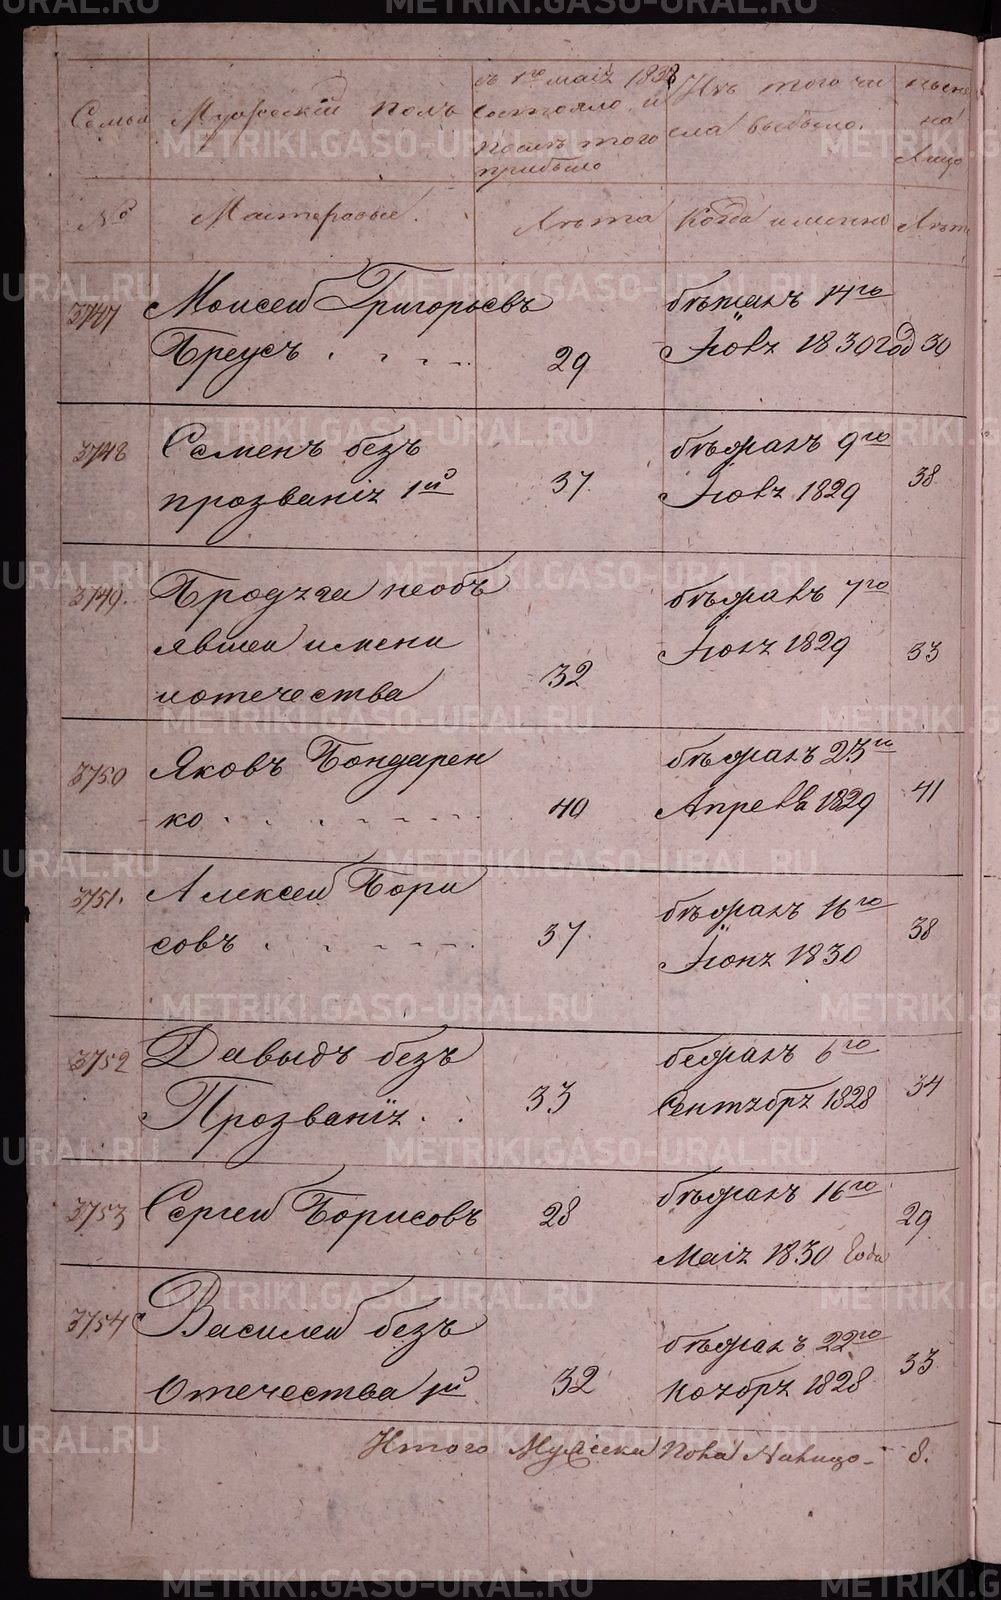 Семьи Мужескій полъ съ 1го маія 1828 состояло и послѣ того прибыло Изъ того числа выбыло. нынѣ на лицо
№ Мастеровые. Лѣта Когда именно Лѣта
3747 Моисей Григорьевъ бѣжалъ 14го
Бреусъ . . . . . 29 Іюля 1830 год 30
3748 Семенъ безъ бѣжалъ 9го
прозванія 1й 37. Іюля 1829 38.
3749. Бродяга необъ бѣжалъ 7го
явшей имени Іюля 1829 33
и отечества 32
3750 Яковъ Бондарен бѣжалъ 23го
ко . . . . . . . 40 Апреля 1829 41
3751. Алексей Бори бѣжалъ 16го
совъ . . . . . . 37. Іюня 1830 38
3752 Давыдъ безъ бежалъ 6го
Прозванія . . 33 Сентября 1828 34
3753 Сергей Борисовъ 28 бѣжалъ 16го 29.
Маія 1830 года
3754 Василей безъ бѣжалъ 22го
Отечества 1й 32 ноября 1828 33
Итого Мужеска пола налицо - 8.
METRIKI.GASO-URAL.RU